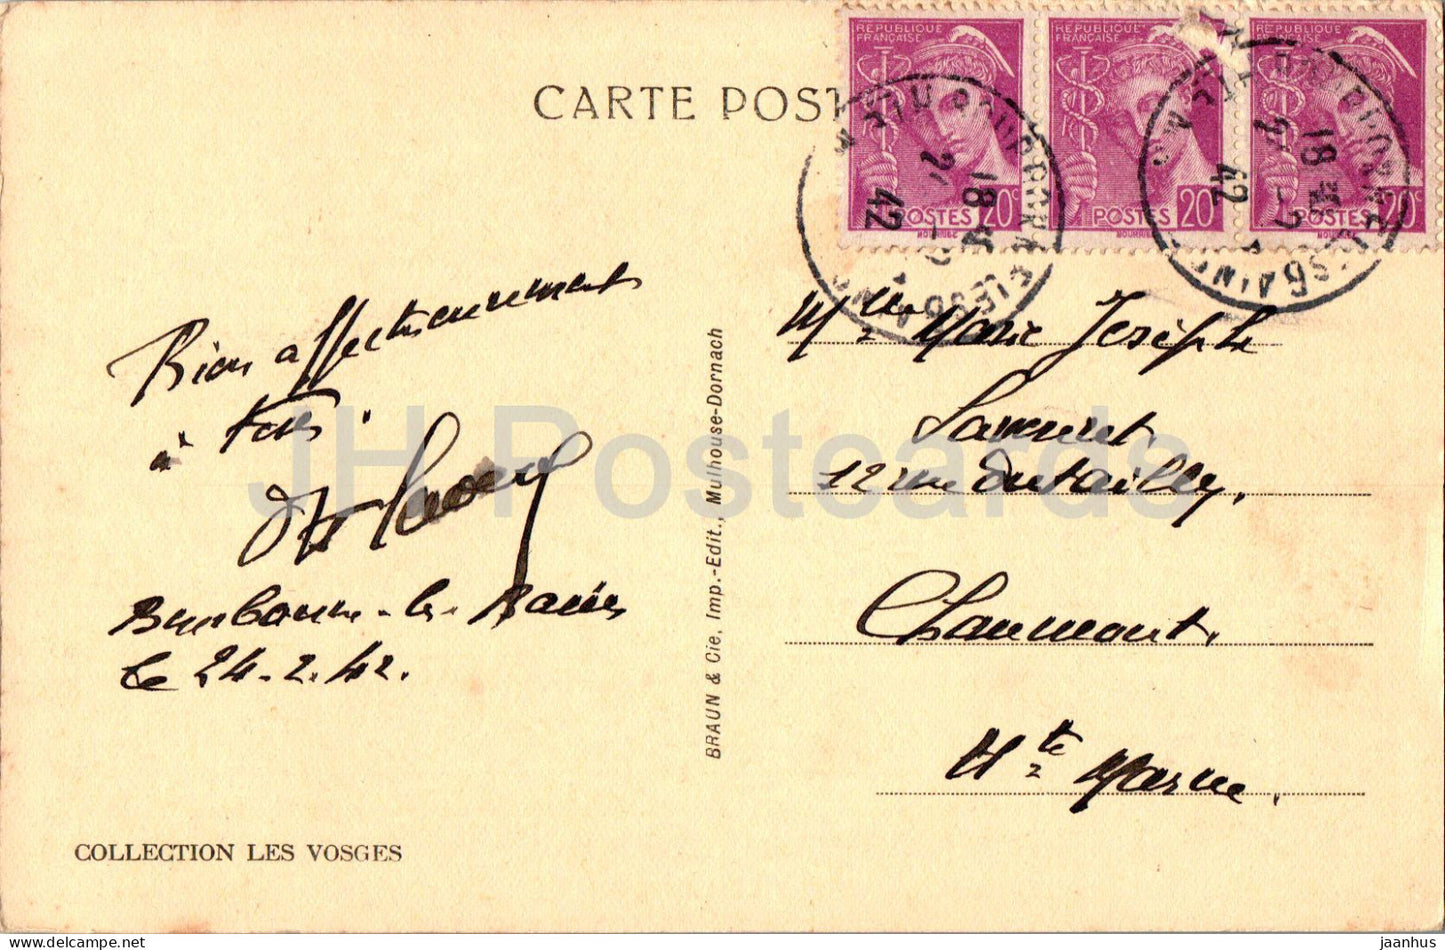 CARTE POST
REPUBLIQUE FRANÇAISE
POSTES 20c
REPUBLIQUE FRANÇAISE
POSTES 20
REPUBLIQUE FRANÇAISE
POSTES 20c
18
2
42
18
42
Bien affectueusement
à tous.
Bourbonne-les-Bains
le 24.2.42.
COLLECTION LES VOSGES
BRAUN & Cie, Imp.-Edit., Mulhouse-Dornach
Mlle Marie Joseph
12 rue Dutailly.
Chaumont.
Hte Marne.
JH Postcards
jaanhus © eu.delcampe.net